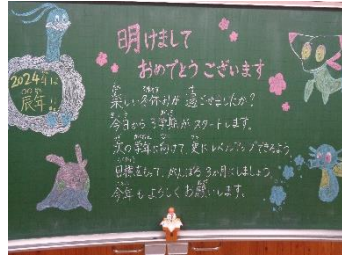 明けまして
おめでとうございます
2024年は
辰年
楽しい冬休みが過ごせましたか？
今日から3学期がスタートします。
次の学年に向けて、更にレベルアップできるよう
目標をもって、がんばる3か月にしましょう。
今年もよろしくお願いします。